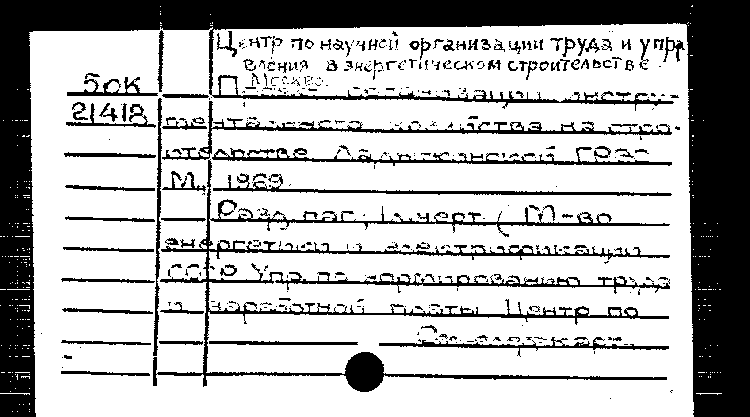 Центр по научной организации труда и упра
вления в энергетическом строительстве
Москва.
50К
Проект организации инстру-
21418
ментального хозяйства на стро-
ительстве Ладыжинской ГРЭС
М., 1969
Разд. паг., 1л.черт. (М-во
энергетики и электрификации
СССР Упр. по нормированию труда
и заработной платы Центр по
См. след. карт.